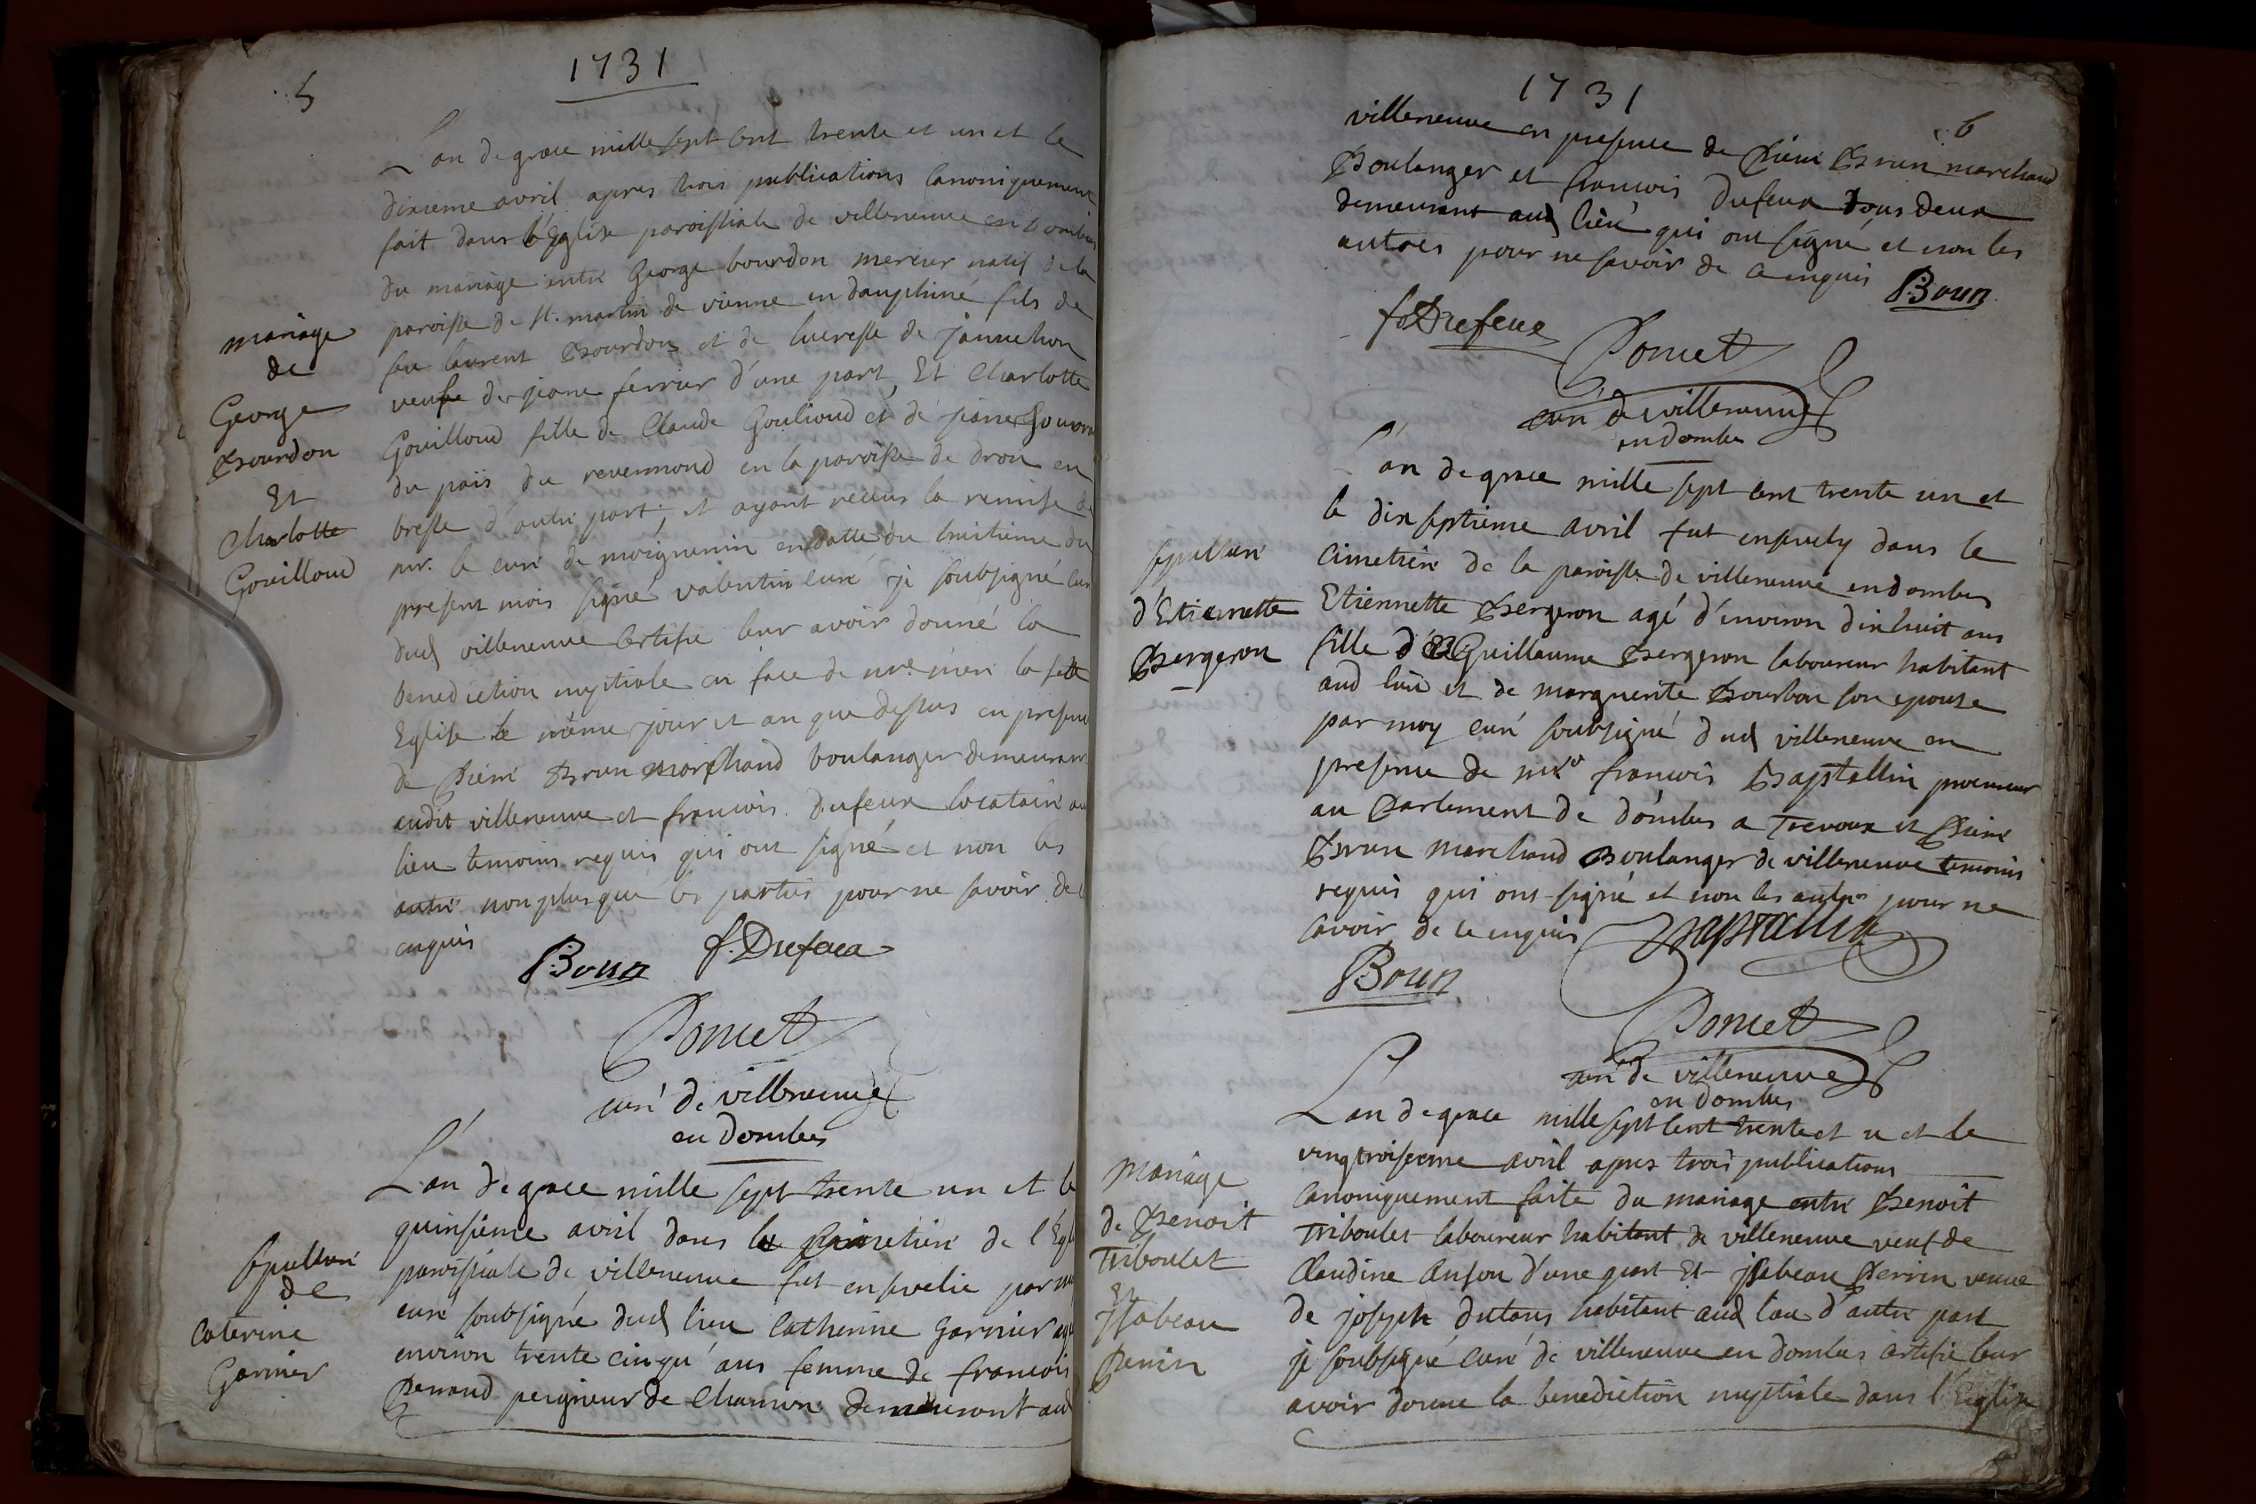 1731
5
L'an de grace mille sept cent trente et un et le
dixieme avril apres trois publications canoniquement
fait dans l'Eglise paroissiale de villeneuve en Dombes
du mariage entre George bourdon mercier natif de la
paroisse de st. martin de vienne en dauphiné fils de
feu laurent Bourdon et de lucresse de
veufve de jeane ferrier d'une part, Et Charlotte
Gouilloud fille de Claude Goulioud et de jeane
du païs du revermond en la paroisse de drou en
bresse d'autre part; et ayant receus la remise de
mr. le curé de moignenin en datte du huitieme du
present mois signé valentin curé je soubsigné curé
dud villeneuve Certifie leur avoir donné la
benediction nuptiale en face de nre. mere la ste
Eglise le même jour et an que dessus en presence
de Pierre Brun marchand boulanger demeurant
audit villeneuve et francois dufeux locataire au
lieu temoins requis qui ont signé et non les
autre non plus que les parties pour ne savoir de
enquis
Brun f. Dufeux
Poncet
curé de villeneuve
en Dombes
mariage
de
George
Bourdon
Et
Charlotte
Gouilloud
L'an de grace mille sept trente un et le
quinsieme avril dans le cimetiere de l'Egl
paroissiale de villeneuve fut ensevelie par moy
curé soubsigné dud lieu Catherine Garnier agé
environ trente cinqu'ans femme de francois
Perraud peigneur de chanvre demeurant aud
Sepulture
de
Caterine
Garnier
1731
6
villeneuve en presence de Pierre Brun marchand
Boulanger et francois Dufeux tous deux
demeurant aud lieu qui ont signé et non les
autres pour ne savoir de ce enquis Brun
f Dufeux
Poncet
curé de villeneuve
en dombes
L'an de grace mille sept cent trente un et
le dix septieme avril fut ensevely dans le
Cimetiere de la paroisse de villeneuve en dombes
Etiennette Bergeron agé d'environ dixhuit ans
fille d Guillaume Bergeron laboureur habitant
aud lieu et de marguerite Bourbon son epouse
par moy curé soubsigné dud villeneuve en
presence de francois Baptallin procureur
au Parlement de dombes a Trevoux et Pierre
Brun marchand Boulanger de villeneuve temoins
requis qui ont signé et non les autres pour ne
savoir de ce enquis Baptallin
Brun
Poncet
curé de villeneuve
en dombes
sepulture
d'Etiennette
Bergeron
L'an de grace mille sept cent trente et u et le
vingtroisieme avril apres trois publications
Canoniquement faite du mariage entre Benoit
Triboulet laboureur habitant de villeneuve veuf de
Claudine d'une part Et jsabeau Perrin veuve
de joseph dutang habitant aud lieu d'autre part
je soubsigné curé de villeneuve en dombes certifie leur
avoir donné la benediction nuptiale dans l'Eglise
Mariage
de Benoit
Triboulet
Et
jsabeau
Perrin